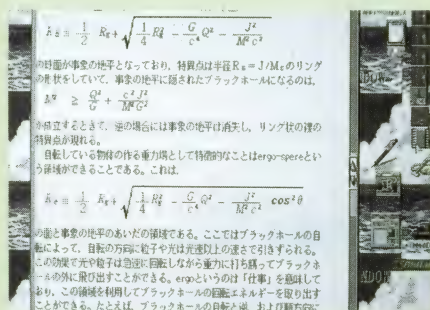 R s = 1/2 R g + √( 1/4 R g ² − G/c⁴ Q² − J²/M²c² )
の球面が事象の地平となっており，特異点は半径R s = J/Mcのリング
の形状をしていて，事象の地平に隠されたブラックホールになるのは，
M² ≧ Q²/G + c²J²/M²G²
が成立するときで，逆の場合には事象の地平は消失し，リング状の裸の
特異点が現れる。
自転している物体の作る重力場として特徴的なことはergo-spereとい
う領域ができることである。これは，
R e = 1/2 R g + √( 1/4 R g ² − G/c⁴ Q² − J²/M²c² cos²θ )
の面と事象の地平のあいだの領域である。ここではブラックホールの自
転によって，自転の方向に粒子や光は光速以上の速さで引きずられる。
この効果で光や粒子は急速に回転しながら重力に打ち勝ってブラックホ
ールの外に飛び出すことができる。ergoというのは「仕事」を意味して
おり，この領域を利用してブラックホールの回転エネルギーを取り出す
ことができる。たとえば，ブラックホールの自転と逆，および順方向に